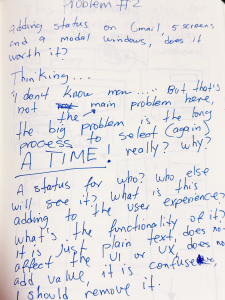 Problem #2
adding status on Gmail, 5 screens
and a modal windows, does it
worth it?
Thinking...
"I don't know man.... But that's
not the main problem here,
the big problem is the long
process to select (again)
A TIME! really? why?
A status for who? who else
will see it? what is this
adding to the user experience?
what's the functionality of it?
It is just plain text, does not
affect the UI or UX, does not
add value, it is confuse,
I should remove it.